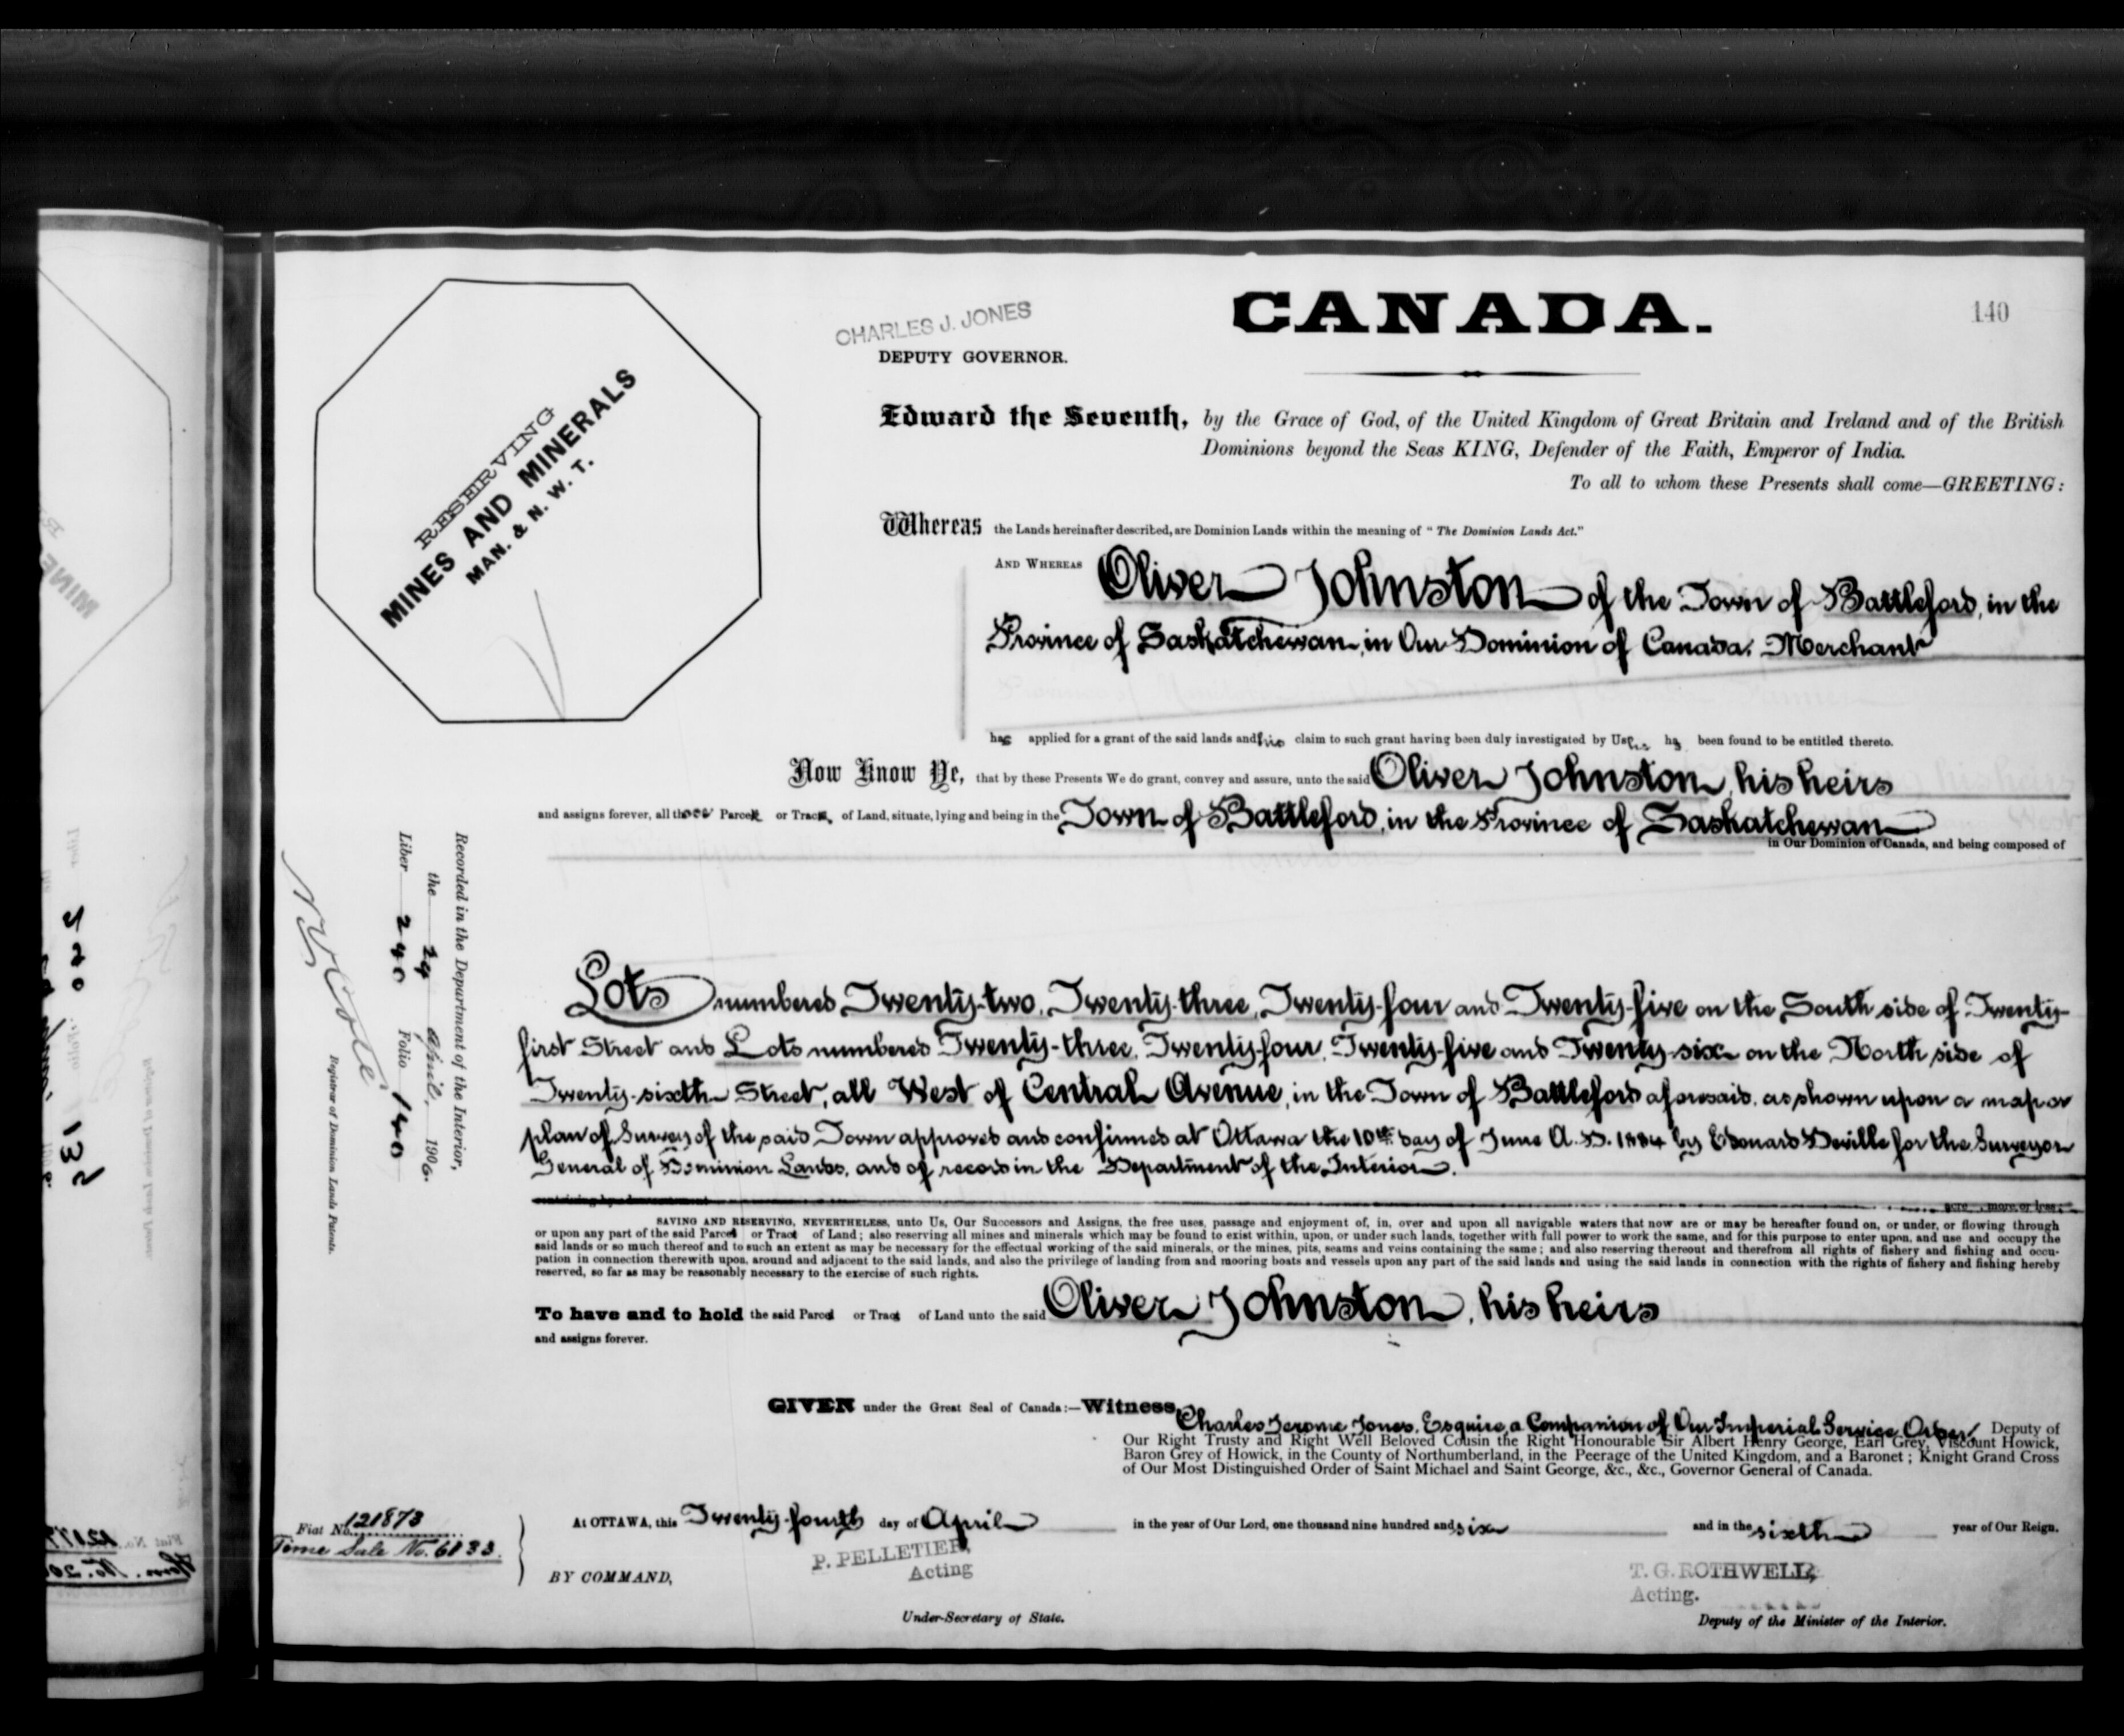 CANADA.
140
CHARLES J. JONES
DEPUTY GOVERNOR.
RESERVING
MINES AND MINERALS
MAN. & N. W. T.
Edward the Seventh, by the Grace of God, of the United Kingdom of Great Britain and Ireland and of the British
Dominions beyond the Seas KING, Defender of the Faith, Emperor of India.
To all to whom these Presents shall come—GREETING:
Whereas the Lands hereinafter described, are Dominion Lands within the meaning of "The Dominion Lands Act."
AND WHEREAS Oliver Johnston of the Town of Battleford, in the
Province of Saskatchewan, in Our Dominion of Canada, Merchant
has applied for a grant of the said lands and his claim to such grant having been duly investigated by Us, he has been found to be entitled thereto.
Now Know Ye, that by these Presents We do grant, convey and assure, unto the said Oliver Johnston, his heirs
and assigns forever, all those Parcels or Tracts of Land, situate, lying and being in the Town of Battleford, in the Province of Saskatchewan
in Our Dominion of Canada, and being composed of
Lots numbered Twenty-two, Twenty-three, Twenty-four and Twenty-five on the South side of Twenty-
first Street and Lots numbered Twenty-three, Twenty-four, Twenty-five and Twenty-six on the North side of
Twenty-sixth Street, all West of Central Avenue, in the Town of Battleford aforesaid, as shown upon a map or
plan of Survey of the said Town approved and confirmed at Ottawa the 10th day of June A.D. 1884 by Edouard Deville for the Surveyor
General of Dominion Lands, and of record in the Department of the Interior.
acre , more or less;
SAVING AND RESERVING, NEVERTHELESS, unto Us, Our Successors and Assigns, the free uses, passage and enjoyment of, in, over and upon all navigable waters that now are or may be hereafter found on, or under, or flowing through
or upon any part of the said Parcel or Tract of Land; also reserving all mines and minerals which may be found to exist within, upon, or under such lands, together with full power to work the same, and for this purpose to enter upon, and use and occupy the
said lands or so much thereof and to such an extent as may be necessary for the effectual working of the said minerals, or the mines, pits, seams and veins containing the same; and also reserving thereout and therefrom all rights of fishery and fishing and occu-
pation in connection therewith upon, around and adjacent to the said lands, and also the privilege of landing from and mooring boats and vessels upon any part of the said lands and using the said lands in connection with the rights of fishery and fishing hereby
reserved, so far as may be reasonably necessary to the exercise of such rights.
To have and to hold the said Parcel or Tract of Land unto the said Oliver Johnston, his heirs
and assigns forever.
GIVEN under the Great Seal of Canada:—Witness, Charles Jerome Jones, Esquire, a Companion of Our Imperial Service Order, Deputy of
Our Right Trusty and Right Well Beloved Cousin the Right Honourable Sir Albert Henry George, Earl Grey, Viscount Howick,
Baron Grey of Howick, in the County of Northumberland, in the Peerage of the United Kingdom, and a Baronet; Knight Grand Cross
of Our Most Distinguished Order of Saint Michael and Saint George, &c., &c., Governor General of Canada.
At OTTAWA, this Twenty-fourth day of April in the year of Our Lord, one thousand nine hundred and six and in the sixth year of Our Reign.
BY COMMAND,
P. PELLETIER,
Acting
Under-Secretary of State.
T. G. ROTHWELL,
Acting.
Deputy of the Minister of the Interior.
Fiat No. 121873
Time Sale No. 6133.
Recorded in the Department of the Interior,
the 24 April, 1906.
Liber 240 Folio 140
N O Coté
Registrar of Dominion Lands Patents.